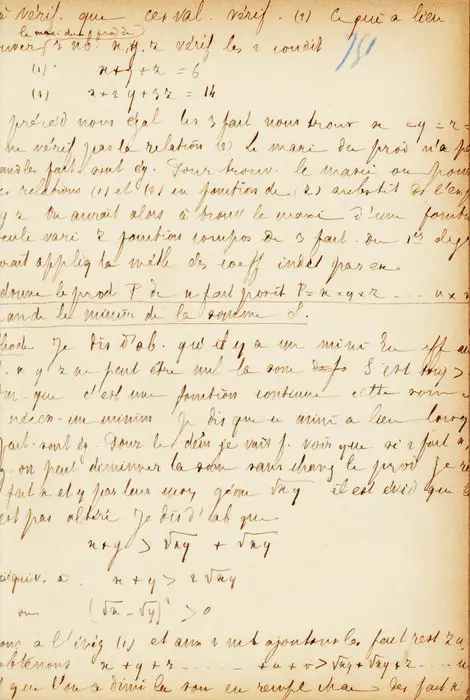 à vérif. que ces val. vérif. (2) Ce qui a lieu
le maxi du prod de
ouver 3 nb. x, y, z vérif les 2 condit
781
(1) x + y + z = 6
(2) x + 2y + 3z = 14
précéd nous égal les 3 fact nous trouv x = y = z =
ne vérif pas la relation (2) Le maxi du prod n'a pa
and les fact sont ég. Pour trouv. le maxi on pour
es relations (1) et (2) en fonction de
y z On aurait alors à trouv le maxi d'une foncti
seule vari z fonction compos de 3 fact. du 1er deg
rait appliq la méth des coeff indét pas en
donne le prod P de n fact posit P = x y z .... u x v
ande le minim de la somme S.
hode Je dis d'ab. qu'il y a un mini En eff au
x y z ne peut être nul la som S est touj >
que c'est une fonction continue cette som a
nécess. un minim Je dis que ce mini a lieu lorsq
fact. sont ég. Pour le dém je vais f. voir que si 2 fact
on peut diminuer la som sans chang le prod Je r
fact x et y par leur moy géom √xy il est évid que l
est pas altéré Je dis d'ab que
x + y > √xy + √xy
équiv. à x + y > 2√xy
ou (√x - √y)² > 0
ons à l'inég (1) et aux 2 mb ajoutons les fact rest z u
obtenons x + y + z ...... + u + v > √xy + √xy + z ....
que l'on a dimi la som en rempl chac des fact x